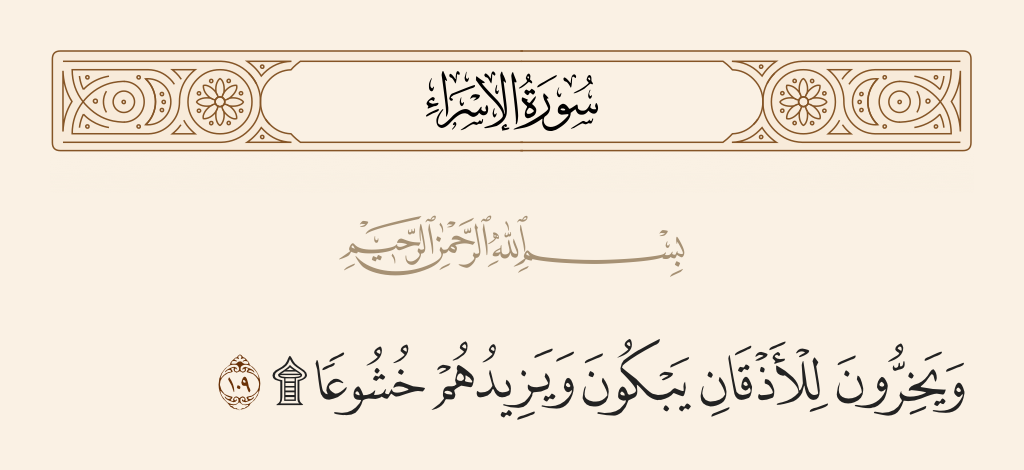 سُورَةُ الإِسْرَاءِ
بِسْمِ ٱللَّهِ ٱلرَّحْمَٰنِ ٱلرَّحِيمِ
وَيَخِرُّونَ لِلْأَذْقَانِ يَبْكُونَ وَيَزِيدُهُمْ خُشُوعًا ۩ ١٠٩